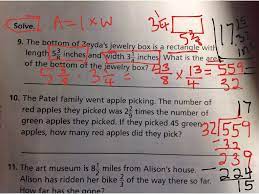 Solve. A = l x W
3 1/4
5 3/8
9. The bottom of Zeyda's jewelry box is a rectangle with
length 5 3/8 inches and width 3 1/4 inches. What is the area
of the bottom of the jewelry box?
5 3/8 · 3 1/4 = 43/8 x 13/4 = 559/32
17 15/32
10. The Patel family went apple picking. The number of
red apples they picked was 2 times the number of
green apples they picked. If they picked 45 green
apples, how many red apples did they pick?
17
32 559
- 32
239
- 224
15
11. The art museum is 8 miles from Alison's house.
Alison has ridden her bike of the way there so
far. How far has she gone?